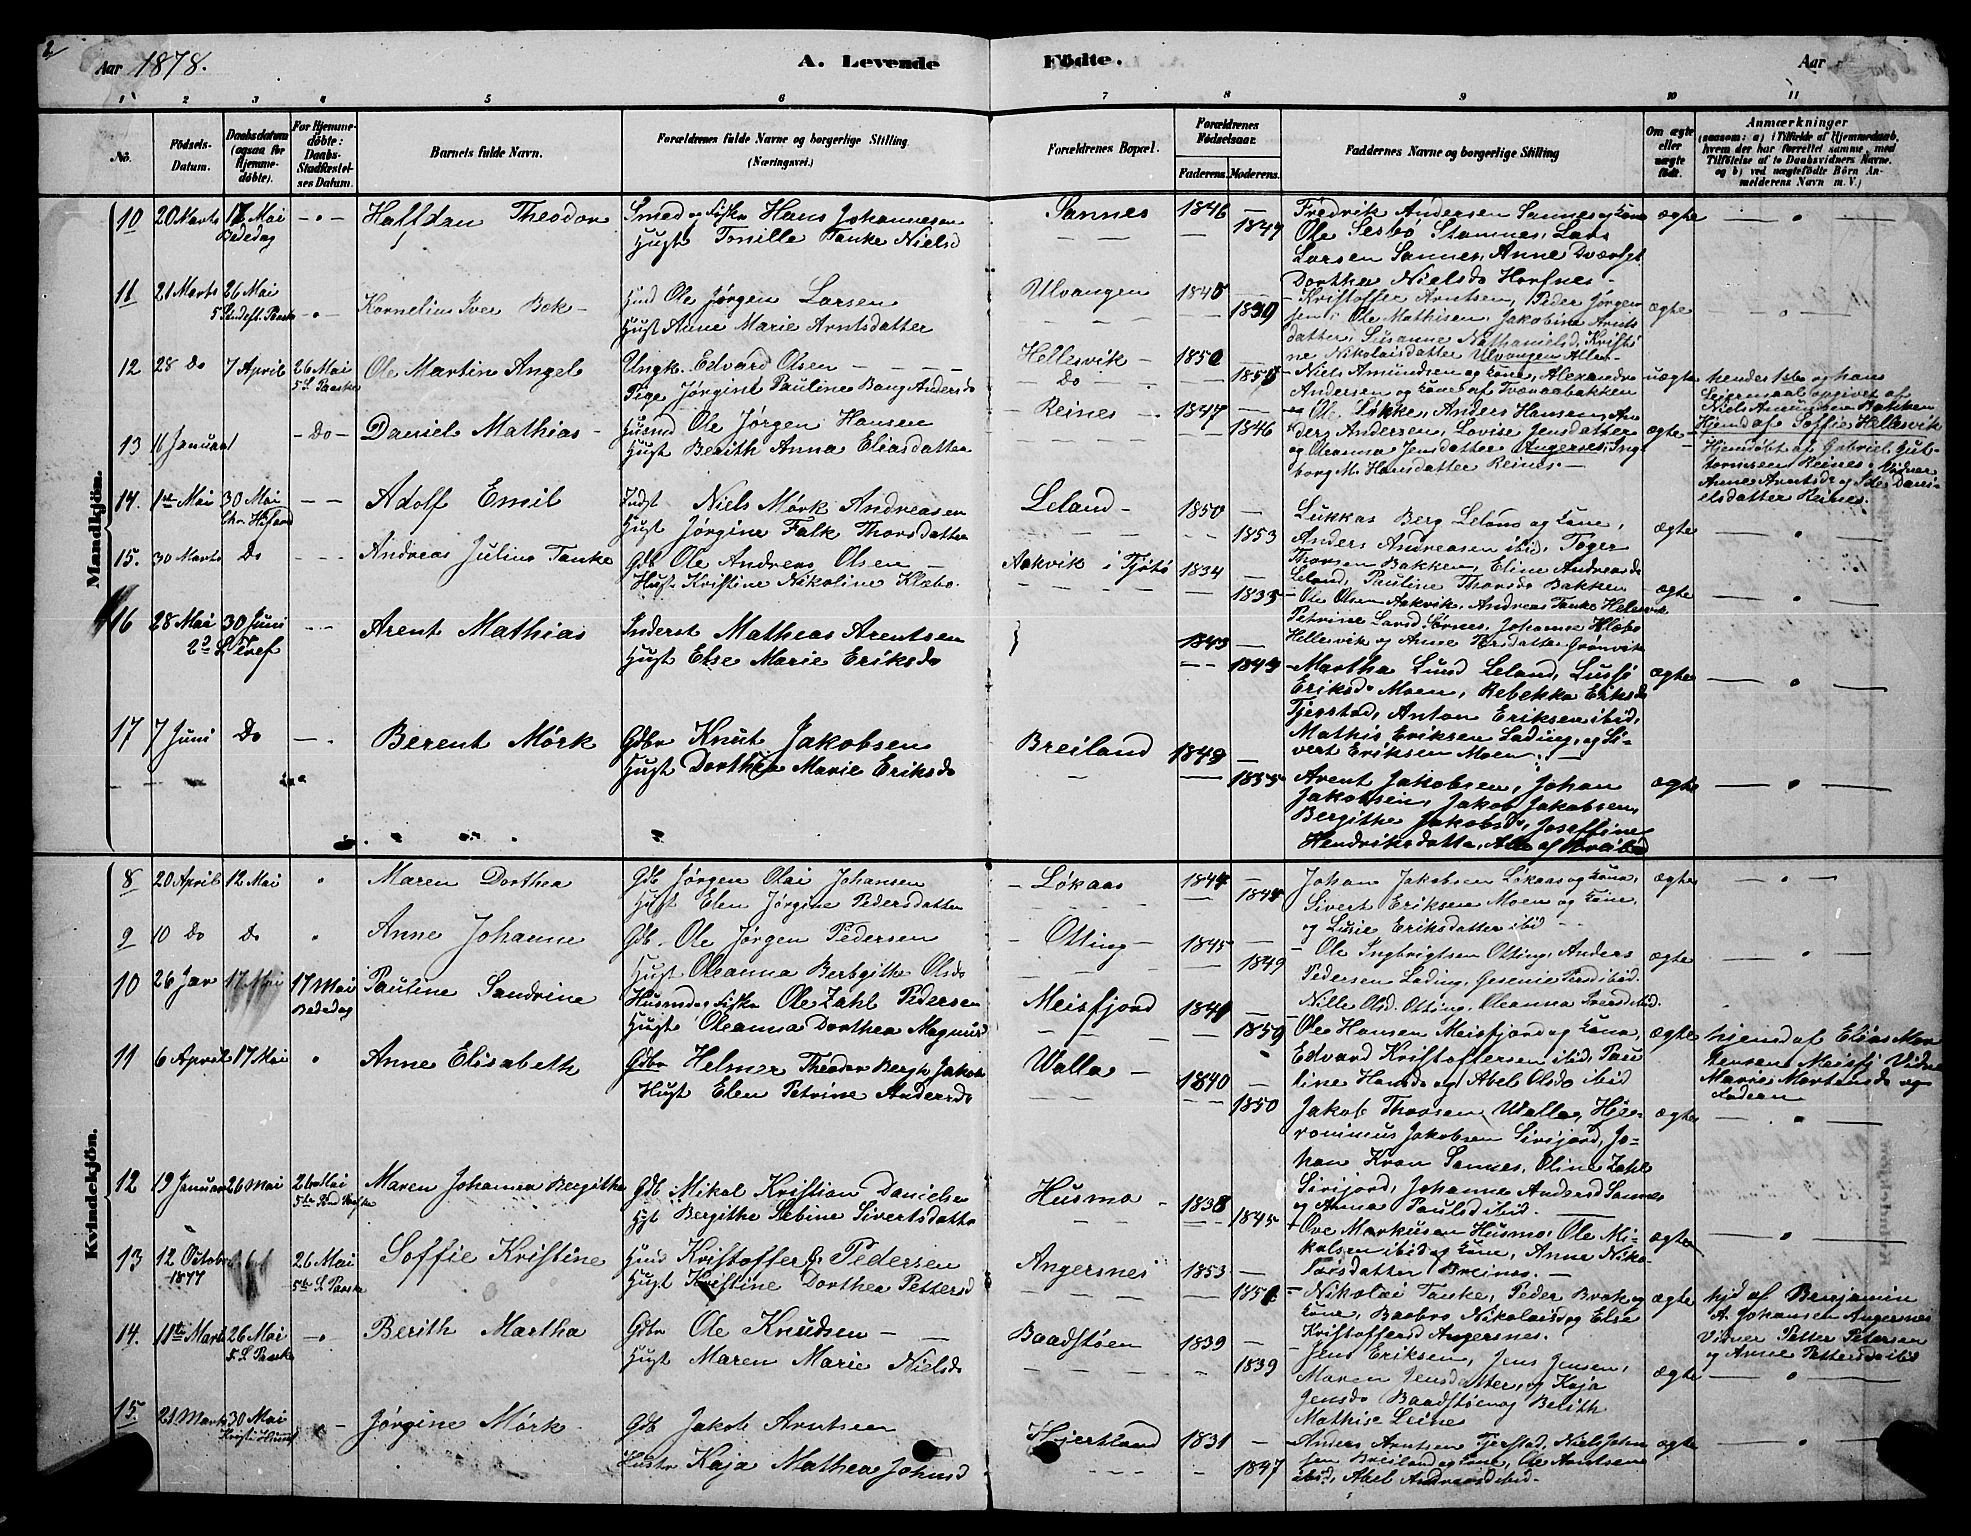 2
Aar 1878.
A. Levende Födte.
Aar
1 2 3 4 5 6 7 8 9 10 11
No.
Födsels-Datum.
Daabsdatum (ogsaa for Hjemmedöbte).
For Hjemmedöbte: Daabs-Stadfæstelses Datum.
Barnets fulde Navn.
Forældrenes fulde Navne og borgerlige Stilling (Næringsvei.)
Forældrenes Bopæl.
Forældrenes Fødselsaar.
Faderens. Moderens.
Faddernes Navne og borgerlige Stilling
Om ægte eller uægte födt.
Anmærkninger
(saasom: a) i Tilfælde af Hjemmedaab, hvem der har forrettet samme, med Tilföielse af to Daabsvidners Navne. og b) ved uægtefödte Börn Anmelderens Navn m. V.)
Mandkjön.
10 20 Marts 17 Mai Bededag Halfdan Theodor
Smed og Fisker Hans Johannesen
Hugst Tonille Tanke Nielsd
Sannes 1846 1847
Fredrik Andersen Sannes og Kone
Ole Sesbö Stamnes, Lars
Larsen Sannes, Anne
Dorthea Nielsd
ægte
11 21 Marts 26 Mai 5 S. Paaske Kornelius Iver Bok
Hmd Ole Jørgen Larsen
Hugst Anne Marie Arntsdatter
Ulvangen
Kristoffer Arntsen, Peder Jørgen
sen, Ole Mathisen, Jakobine Arnts
datter, Susanne Nathanielsd, Kristi
ne Nikolaisdatter Ulvangen Alle
ægte
12 28 Do 7 April 26 Mai 5 S. Paaske Ole Martin Angel
Ungk. Edvard Olsen
Pige Jørgine Pauline Bang Andersd
Hellesvik Do 1850
Niels Amundsen og Kone, Alexander
Andersen og Kone af Tværaabakken
uægte
Niels Amundsen Bakken
Hjemd af Soffie Hellesvik
13 16 Januar Do Daniel Mathias
Husmd Ole Jørgen Hansen
Hugst Berith Anna Eliasdatter
Reines 1847 1846
Ole Løkke, Anders Hansen, An
ders Andersen, Lovise Jensdatter
og Oleanna Jensdatter Angersnes, Ing
borg M. Hansdatter Reines
ægte
Hjemdøbt af Gabriel Gut
tormsen Reines, Vidner
Anne Arntsd og Dani
elsdatter Reines.
14. 1ste Mai 30 Mai Chr. Hf. Adolf Emil
Indst Niels Mørk Andreasen
Hugst Jørgine Falk Thorsdatter
Leland 1850 1853
Lukkas Berg Leland og Kone,
Anders Andreasen ibid, Toger
Thorsen Bakken, Eline Andreasd
Leland, Pauline Thorsd Bakken
ægte
15. 30 Marts Do Andreas Julius Tanke
Gdb Ole Andreas Olsen
Hust. Kristine Nikoline Klæbo
Aakvik i Tjötö 1834 1835
Ole Olsen Aakvik, Andreas Tanke Hellesvik
Petrine Larsd Sørnes, Johanna Klæbo
Hellesvik og Anne Persdatter Grønvik
ægte
16 28 Mai 30 Juni 2d S. Tref Arent Mathias
Inderst Mathias Arentsen
Hugst Else Marie Eriksd
1843
Martha Lund Leland, Lussi
Eriksd Moen, Rebekka Eriksd
Tjerstad, Anton Eriksen ibid,
Mathis Eriksen Lading, og Si
vert Eriksen Moen
ægte
17 7 Juni Do Berent Mörk
Gdbr Knut Jakobsen
Hugst Dorthea Marie Eriksd
Breiland 1855
Arent Jakobsen, Johan
Jakobsen, Jakob Jakobsen,
Bergithe Jakobsd, Joseffine
Hendriksdatter, Alle af Breiland
ægte
Kvindekjön.
8 20 April 12 Mai Maren Dorthea
Gdb Jørgen Olai Johansen
Hugst Elen Jørgine Pedersdatter
Løkaas
Johan Jakobsen Løkaas og Kone,
Sivert Eriksen Moen og Kone,
og Lusie Eriksdatter ibid
ægte
9 10 Do Do Anne Johanne
Gdb. Ole Jørgen Pedersen
Hugst Oleanna Berbgithe Olsd
Otting 1845 1849
Ole Ingbrigtsen Otting, Anders
Pedersen Lading, Gesenie ibid
Nille Olsd Otting, Oleanna Iversd ibid.
ægte
10 26 Jan 17 Mai 17 Mai Bededag Pauline Sandrine
Husmd og Fisker Ole Zahl Pedersen
Hugst Oleanna Dorthea Magnusd
Meisfjord
Ole Hansen Meisfjord og Kone,
Edvard Kristoffersen ibid, Pau
line Hansd og Abel Olsd ibid
ægte
hjemd af Elias Mor
tensen Meisfj Vidner
Marie Martensd og
Faderen
11 6 April 17 Mai Anne Elisabeth
Gdbr Helmer Theodor Bergh Jakobs
Hugst Elen Petrine Andersd
Walla 1840 1850
Jakob Thorsen Walla, Hje
ronimus Jakobsen Sirijord, Jo
han Kron Sannes, Oline Zahl
Sirijord, Johanne Andersd Sannes
og Anna Paulsd ibid.
ægte
12 19 Januar 26 Mai 26 Mai 5te Paaske Maren Johanna Bergithe
Gdb Mikal Kristian Danielse
Hgt Bergithe Sebine Sivertsdatter
Husmo 1838 1845
Ove Markusen Husmo, Ole Mi
kalsen ibid og Kone, Anne Niko
laisdatter Breines.
ægte
13 12 October 1877 26 Mai 5te S. Paaske Soffie Kristine
Hmd Kristoffer Pedersen
Hugst Kristine Dorthea Pettersd
Angersnes 1853
Nikolai Tanke, Peder Brok og
Kone, Baabro Nikolaisd og Else
Kristoffersd Angersnes.
ægte
hjd af Benjamin
A. Johansen Angersnes
Vidner Petter Petersen
og Anne Pettersd ibid
14. 11te Marts 26 Mai 5. S. Paaske Berith Martha
Gdbr Ole Knudsen
Hugst Maren Marie Nielsd
Baadstöen 1839 1839
Jens Eriksen, Jens Jensen,
Maren Jensdatter, og Kaja
Jensd Baadstöen og Berith
Mathise Leines
ægte
15. 21 Marts 30 Mai Kristi Himmelf Jørgine Mörk
Gdb Jakob Arntsen
Hustr Kaja Mathea Johnsd
Hjertland 1831 1847
Anders Arntsen Tjerstad, Niels John
sen Breiland og Kone, Ole Arntsen
ibid, Abel Andreasd ibid.
ægte